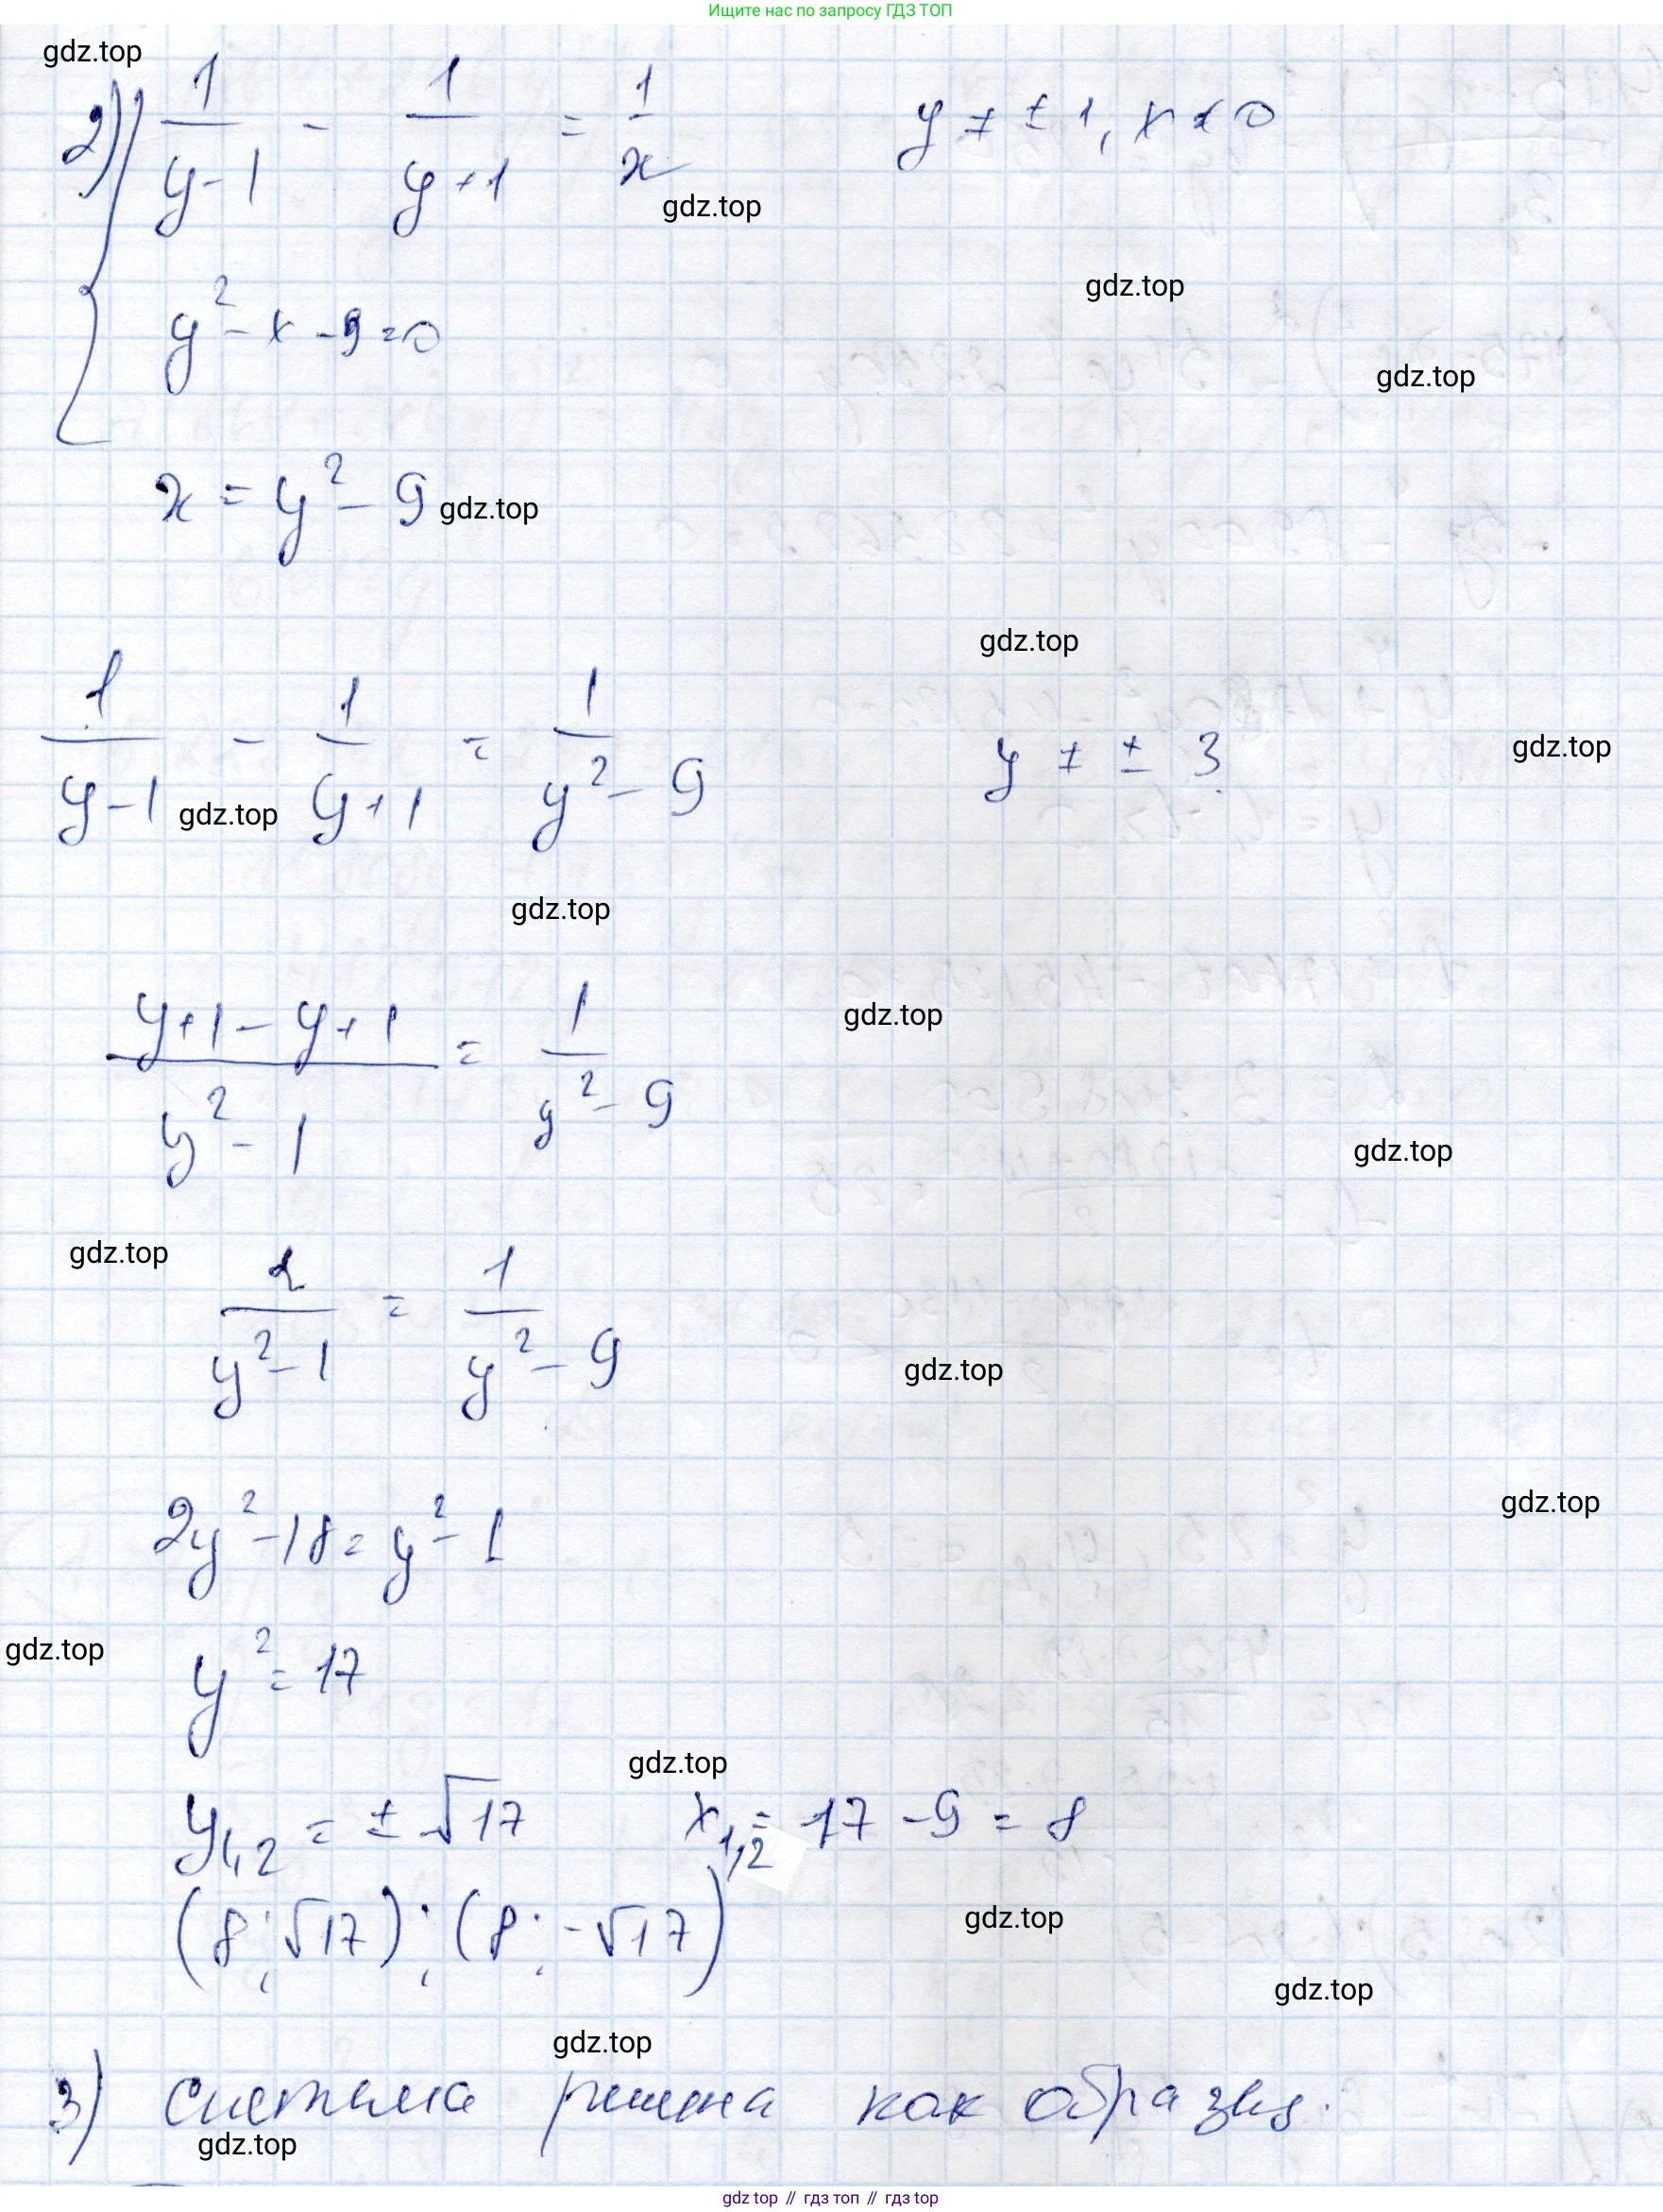 Ищите нас по запросу ГДЗ ТОП
gdz.top
2) { 1/(y-1) - 1/(y+1) = 1/x    y ≠ ±1, x ≠ 0
gdz.top
gdz.top
y² - x - 9 = 0
gdz.top
x = y² - 9 gdz.top
gdz.top
1/(y-1) - 1/(y+1) = 1/(y² - 9)    y ≠ ± 3
gdz.top
gdz.top
gdz.top
(y+1-y+1)/(y² - 1) = 1/(y² - 9)
gdz.top
gdz.top
gdz.top
2/(y²-1) = 1/(y² - 9)
gdz.top
2y² - 18 = y² - 1
gdz.top
y² = 17
gdz.top
gdz.top
y₁,₂ = ± √17    x₁,₂ = 17 - 9 = 8
(8; √17); (8; -√17)
gdz.top
gdz.top
gdz.top
3) система решена как образец.
gdz.top
gdz top // гдз топ // гдз top